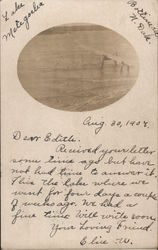 Lake
Metagoshe
Bottineau
N. Dak.
Aug. 30, 1908.
Dear Edith.
Recived your letter
some time ago but have
not had time to answer it.
This the lake where we
went for four days a couple
of weeks ago. We had a
fine time Will write soon
Your loving friend.
Elsie W.